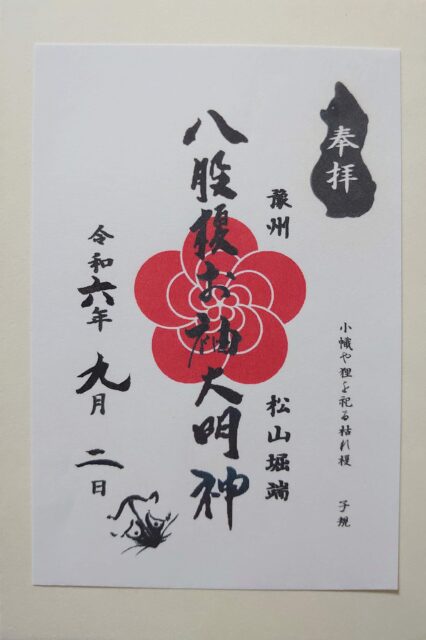 奉拝
小幟や狸を祀る枯れ榎　子規
豫州　松山堀端
八股榎お袖大明神
令和六年九月二日